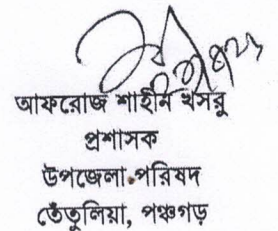 আফরোজ শাহীন খসরু
প্রশাসক
উপজেলা পরিষদ
তেঁতুলিয়া, পঞ্চগড়